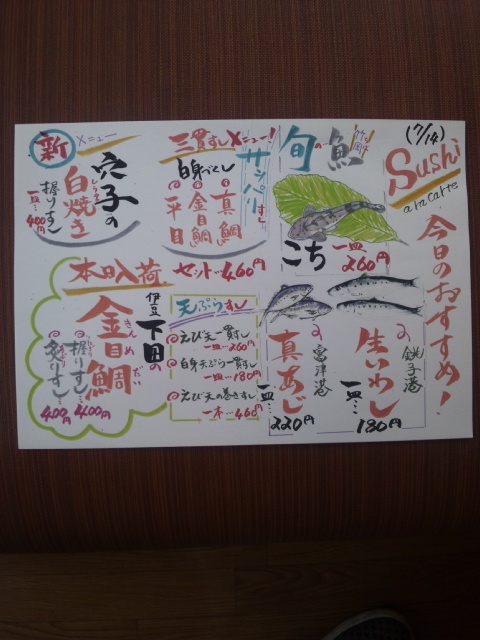 (7/14)
Sushi
a ra carte
今日のおすすめ!
旬の魚
こち
一皿 260円
銚子港
生いわし
一皿… 180円
富津港
真あじ
一皿… 220円
三貫すしメニュー!
サッパリすし
白身づくし
真鯛
金目鯛
平目
セット 460円
天ぷらすし
えび天一貫すし
一皿…260円
白身天ぷら一貫すし
一皿…180円
えび天の巻きすし
一本…460円
新メニュー
穴子の
白焼き
しらやき
握りすし
一皿… 400円
本日入荷
伊豆
下田の
金目鯛
きんめだい
握りすし… 400円
炙りすし… 400円